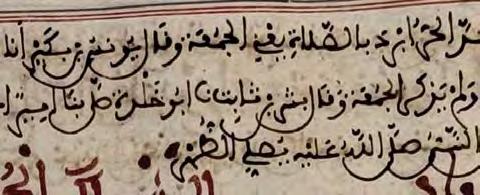 الحر ابرد بالصلاة يعني الجمعة وقال يونس بن بكير أنا
ولم يذكر الجمعة وقال بشر بن ثابت نا ابو خلدة صلى بنا امير
النبي صلى الله عليه يصلي الظهر